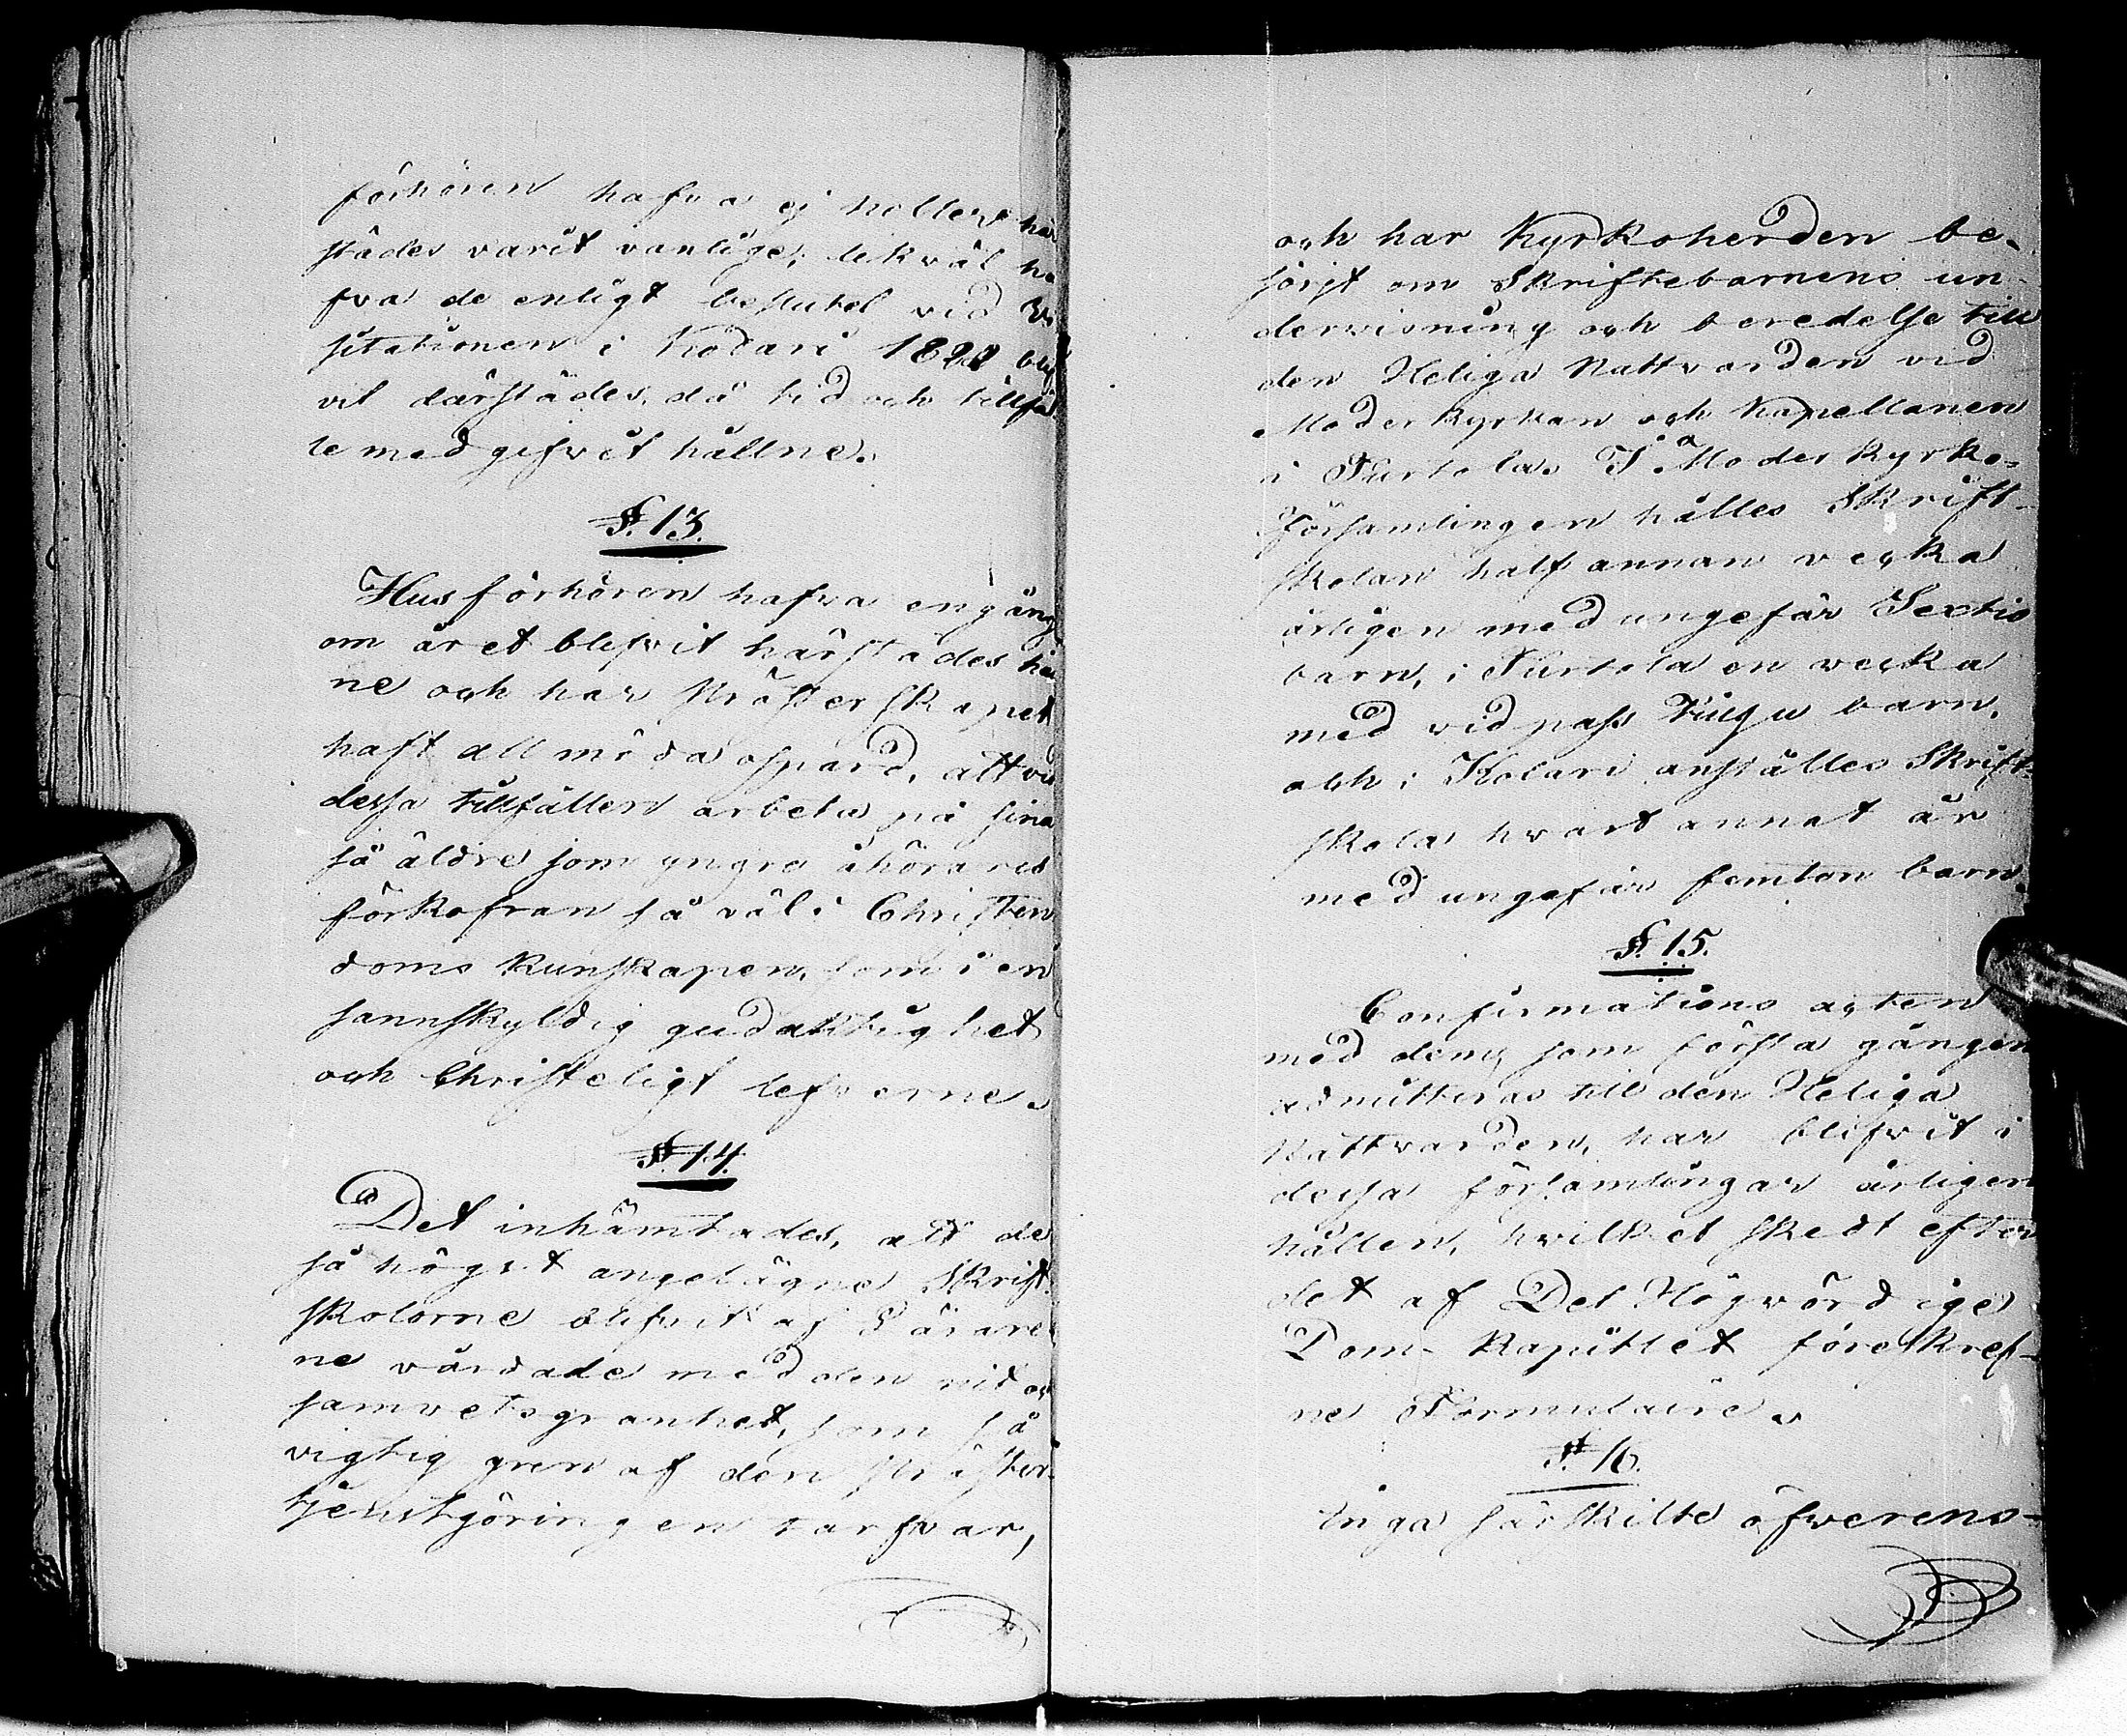 förhören hafva ej heller här
städes varit vanlige; likväl ha
fva de enligt beslutet vid Vi
sitationen i Kolari 1828 blif
vit därstädes, då tid och tillfäl
le medgifvit hållne.
§. 13.
Husförhören hafva en gång
om året blifvit härstädes håll
ne och har Presterskapet
haft all möda ospard, att vid
dessa tillfällen arbeta på sina
så äldre som yngre åhörares
förkofran så väl i Christen
doms kunskapen, som i en
sannskyldig gudaktighet
och Christeligt lefverne.
§. 14.
Det inhämtades, att de
så högst angelägne Skrift
skolorne blifvit af Lärare
ne vårdade med den nit och
samvetsgranhet, som så
vigtig gren af den Prester
tjenstgöringen tarfvar,
och har Kyrkoherden be-
sörjt om Skriftebarnens un-
dervisning och beredelse till
den Heliga Nattvarden vid
Moderkyrkan och Kapellanen
i Turtola. I Moderkyrko-
Församlingen hålles Skrift-
skolan half annan vecka
årligen med ungefär Sextio
barn, i Turtola en vecka
med vid pass Tiugu barn,
och i Kolari anställes Skrift-
skola hvart annat år
med ungefär femton barn.
§. 15.
Confirmations acten
med dem, som första gången
admitteras till den Heliga
Nattvarden, har blifvit i
dessa församlingar årligen
hållen, hvilket skedt efter
det af Det Högvördige
Dom-Kapitlet föreskref-
ne Formulaire.
§. 16.
Inga särskilte öfverens-